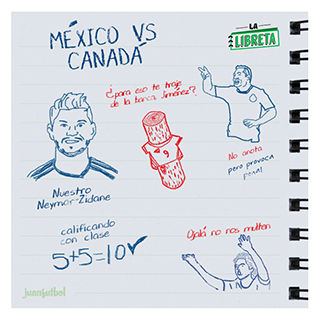 MÉXICO VS
CANADÁ
LA
LIBRETA
¿para eso te traje
de la banca Jiménez?
9
No anota
pero provoca
penal
Nuestro
Neymar-Zidane
calificando
con clase
5+5=10✓
Ojalá no nos multen
juanfutbol